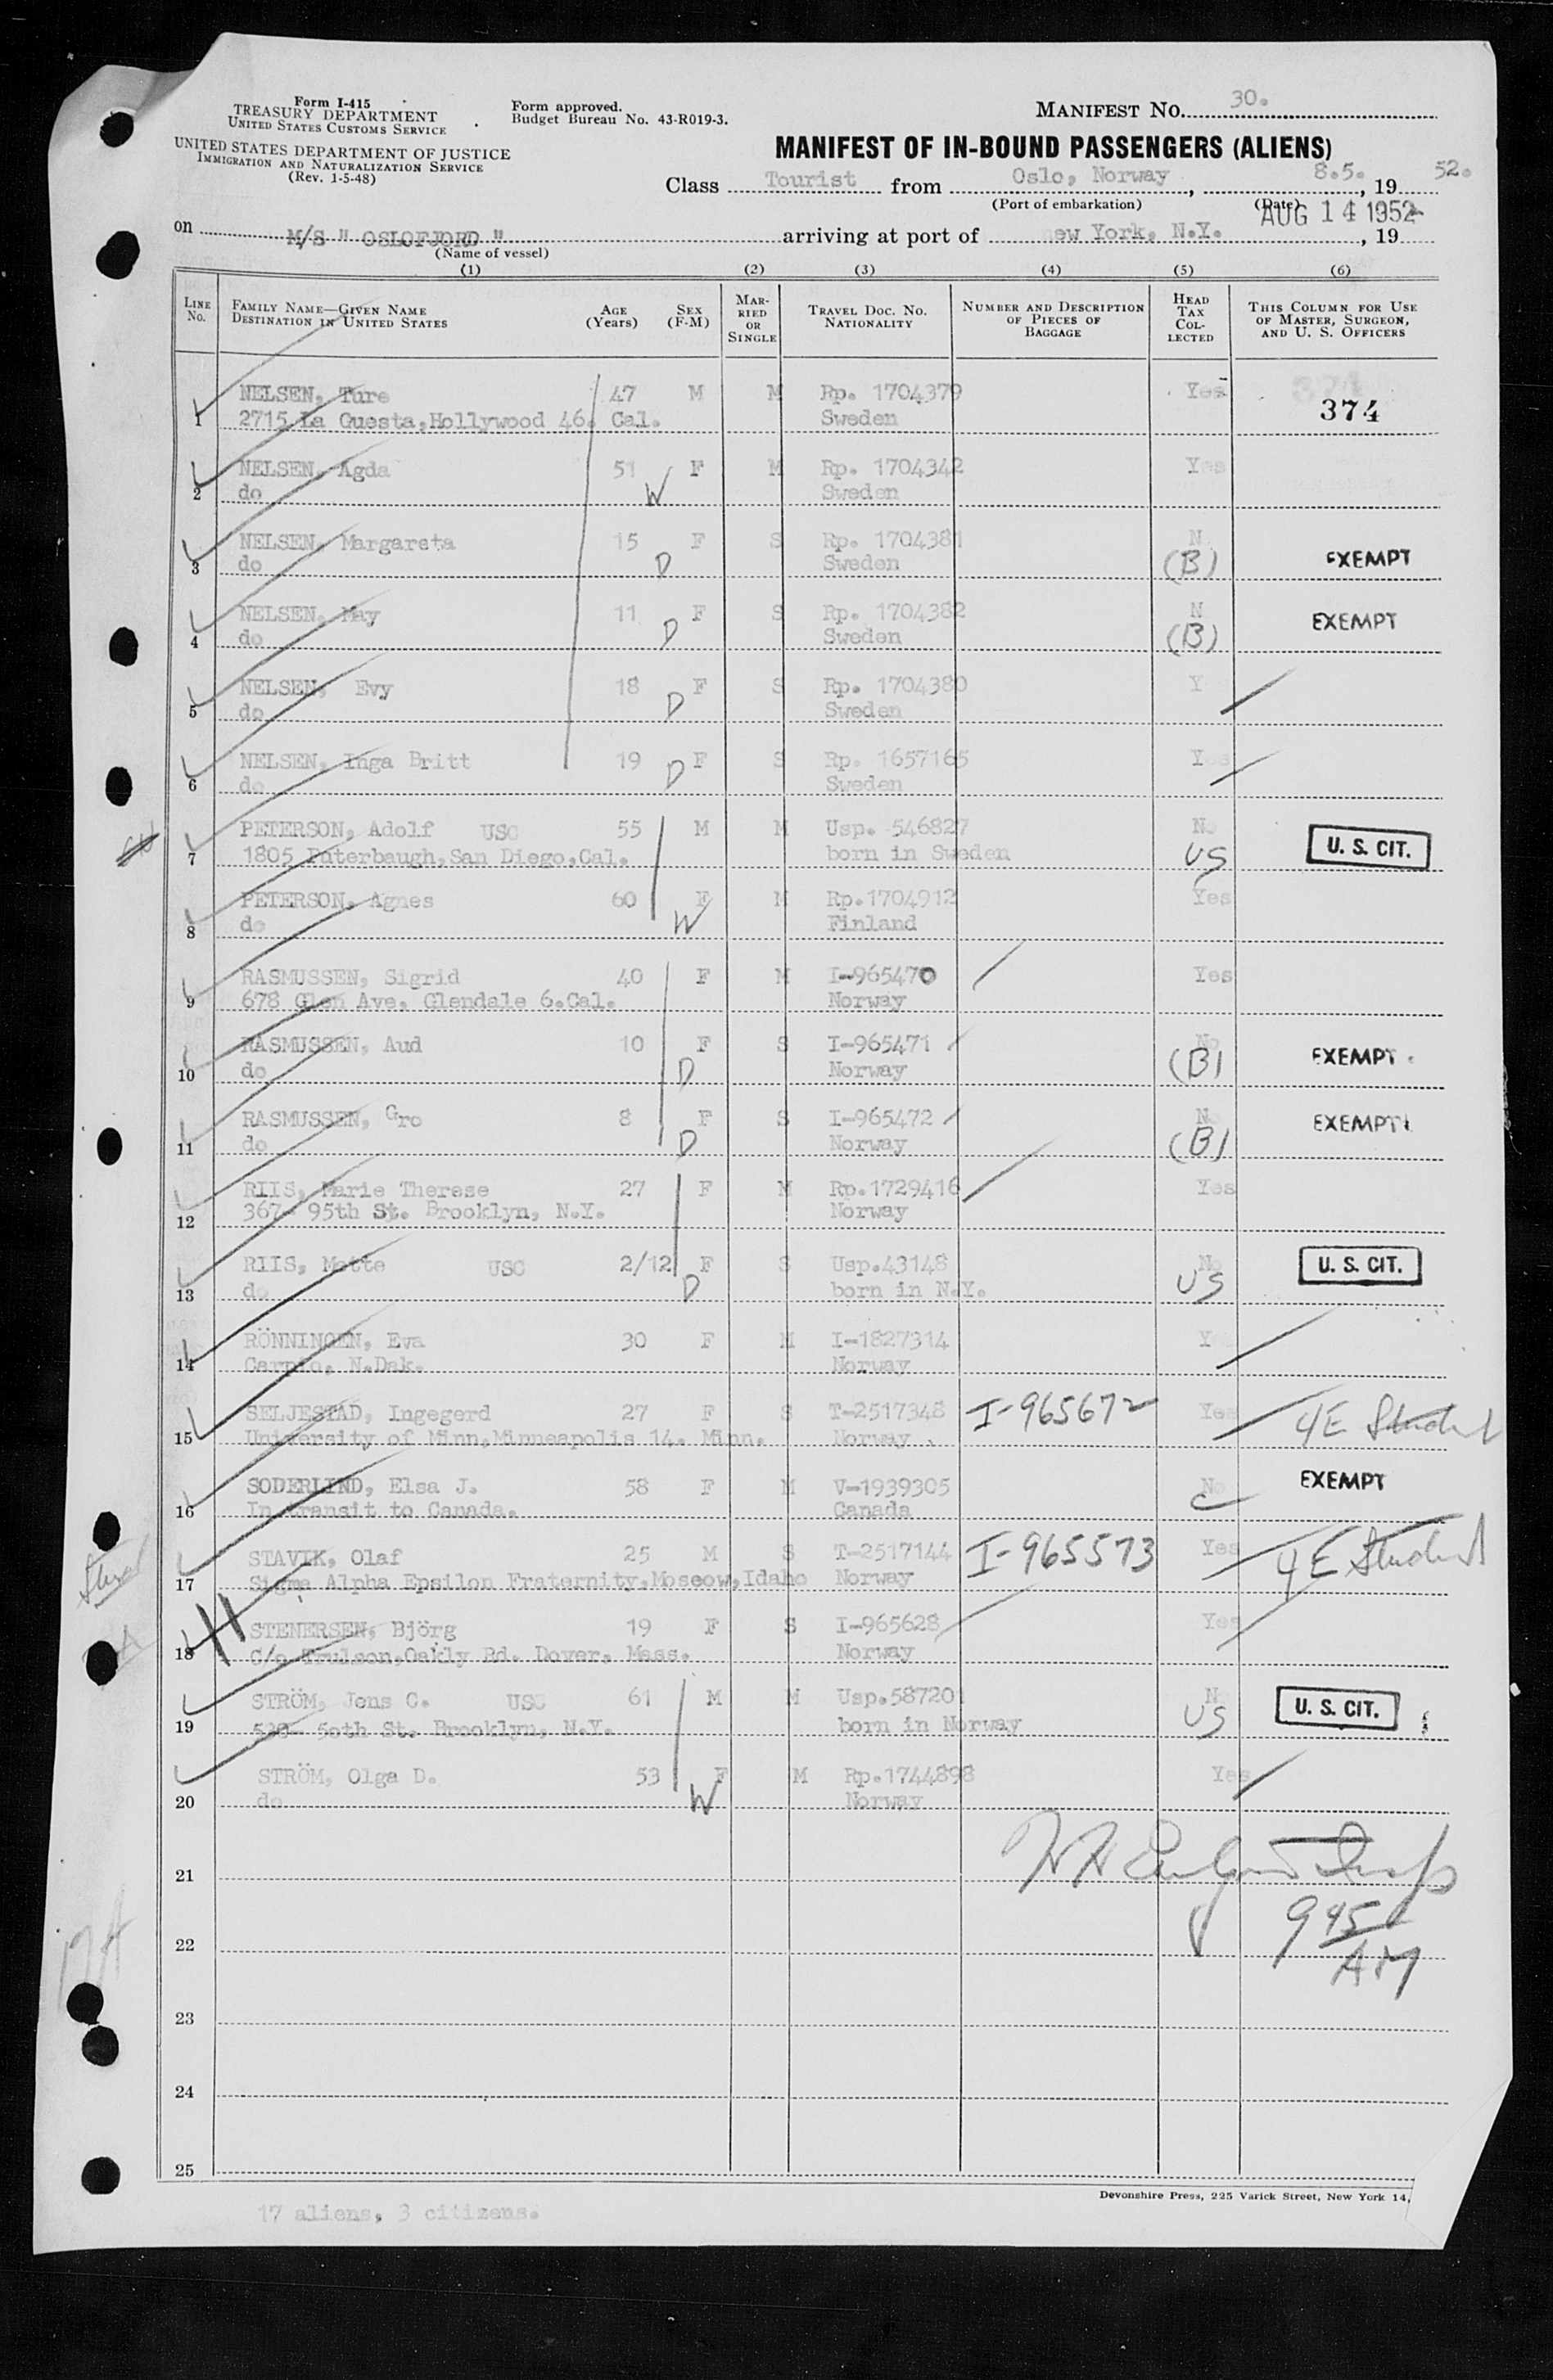 Form I-415
TREASURY DEPARTMENT
UNITED STATES CUSTOMS SERVICE
UNITED STATES DEPARTMENT OF JUSTICE
IMMIGRATION AND NATURALIZATION SERVICE
(Rev. 1-5-48)
Form approved.
Budget Bureau No. 43-R019-3.
MANIFEST No. 30.
MANIFEST OF IN-BOUND PASSENGERS (ALIENS)
Class Tourist from Oslo, Norway, 8.5., 19 52.
(Port of embarkation) (Date)
on M/S " OSLOFJORD " arriving at port of ew York, N.Y. AUG 14 1952, 19
(Name of vessel)
(1) (2) (3) (4) (5) (6)
LINE No. FAMILY NAME—GIVEN NAME DESTINATION IN UNITED STATES AGE (Years) SEX (F-M) MARRIED OR SINGLE TRAVEL DOC. NO. NATIONALITY NUMBER AND DESCRIPTION OF PIECES OF BAGGAGE HEAD TAX COLLECTED THIS COLUMN FOR USE OF MASTER, SURGEON, AND U. S. OFFICERS
NELSEN, Ture 47 M M Rp. 1704379 Yes 374
1 2715 La Cuesta,Hollywood 46. Cal. Sweden
NELSEN, Agda 51 F M Rp. 1704342 Yes
2 do W Sweden
NELSEN, Margareta 15 F S Rp. 1704381 N
3 do D Sweden (B) EXEMPT
NELSEN, May 11 F S Rp. 1704382 N EXEMPT
4 do D Sweden (B)
NELSEN, Evy 18 F S Rp. 1704380 Y
5 do D Sweden
NELSEN, Inga Britt 19 F S Rp. 1657165 Yes
6 do D Sweden
PETERSON, Adolf USC 55 M M Usp. 546827 No U. S. CIT.
7 1805 Puterbaugh,San Diego,Cal. born in Sweden US
PETERSON, Agnes 60 F M Rp.1704912 Yes
8 do W Finland
RASMUSSEN, Sigrid 40 F M I-965470 Yes
9 678 Glen Ave. Glendale 6.Cal. Norway
RASMUSSEN, Aud 10 F S I-965471 No EXEMPT
10 do D Norway (B)
RASMUSSEN, Gro 8 F S I-965472 No EXEMPT
11 do D Norway (B)
RIIS, Marie Therese 27 F M Rp.1729416 Yes
12 367- 95th St. Brooklyn, N.Y. Norway
RIIS, Mette USC 2/12 F S Usp.43148 No U. S. CIT.
13 do D born in N.Y. US
RÖNNINGEN, Eva 30 F M I-1827314 Y
14 Carpio, N.Dak. Norway
SELJESTAD, Ingegerd 27 F S T-2517348 I-965672 Yes 4E Student
15 University of Minn,Minneapolis 14. Minn. Norway
SODERLIND, Elsa J. 58 F M V-1939305 No EXEMPT
16 In transit to Canada. Canada C
STAVIK, Olaf 25 M S T-2517144 I-965573 Yes 4E Student
17 Sigma Alpha Epsilon Fraternity,Moscow,Idaho Norway
STENERSEN, Björg 19 F S I-965628 Yes
18 C/o Trulson,Oakly Rd. Dover, Mass. Norway
STRÖM, Jens C. USC 61 M M Usp.587201 N U. S. CIT.
19 520- 50th St. Brooklyn, N.Y. born in Norway US
STRÖM, Olga D. 53 F M Rp.1744898 Yes
20 do W Norway
21
22 9 45 AM
23
24
25
Devonshire Press, 225 Varick Street, New York 14,
17 aliens, 3 citizens.